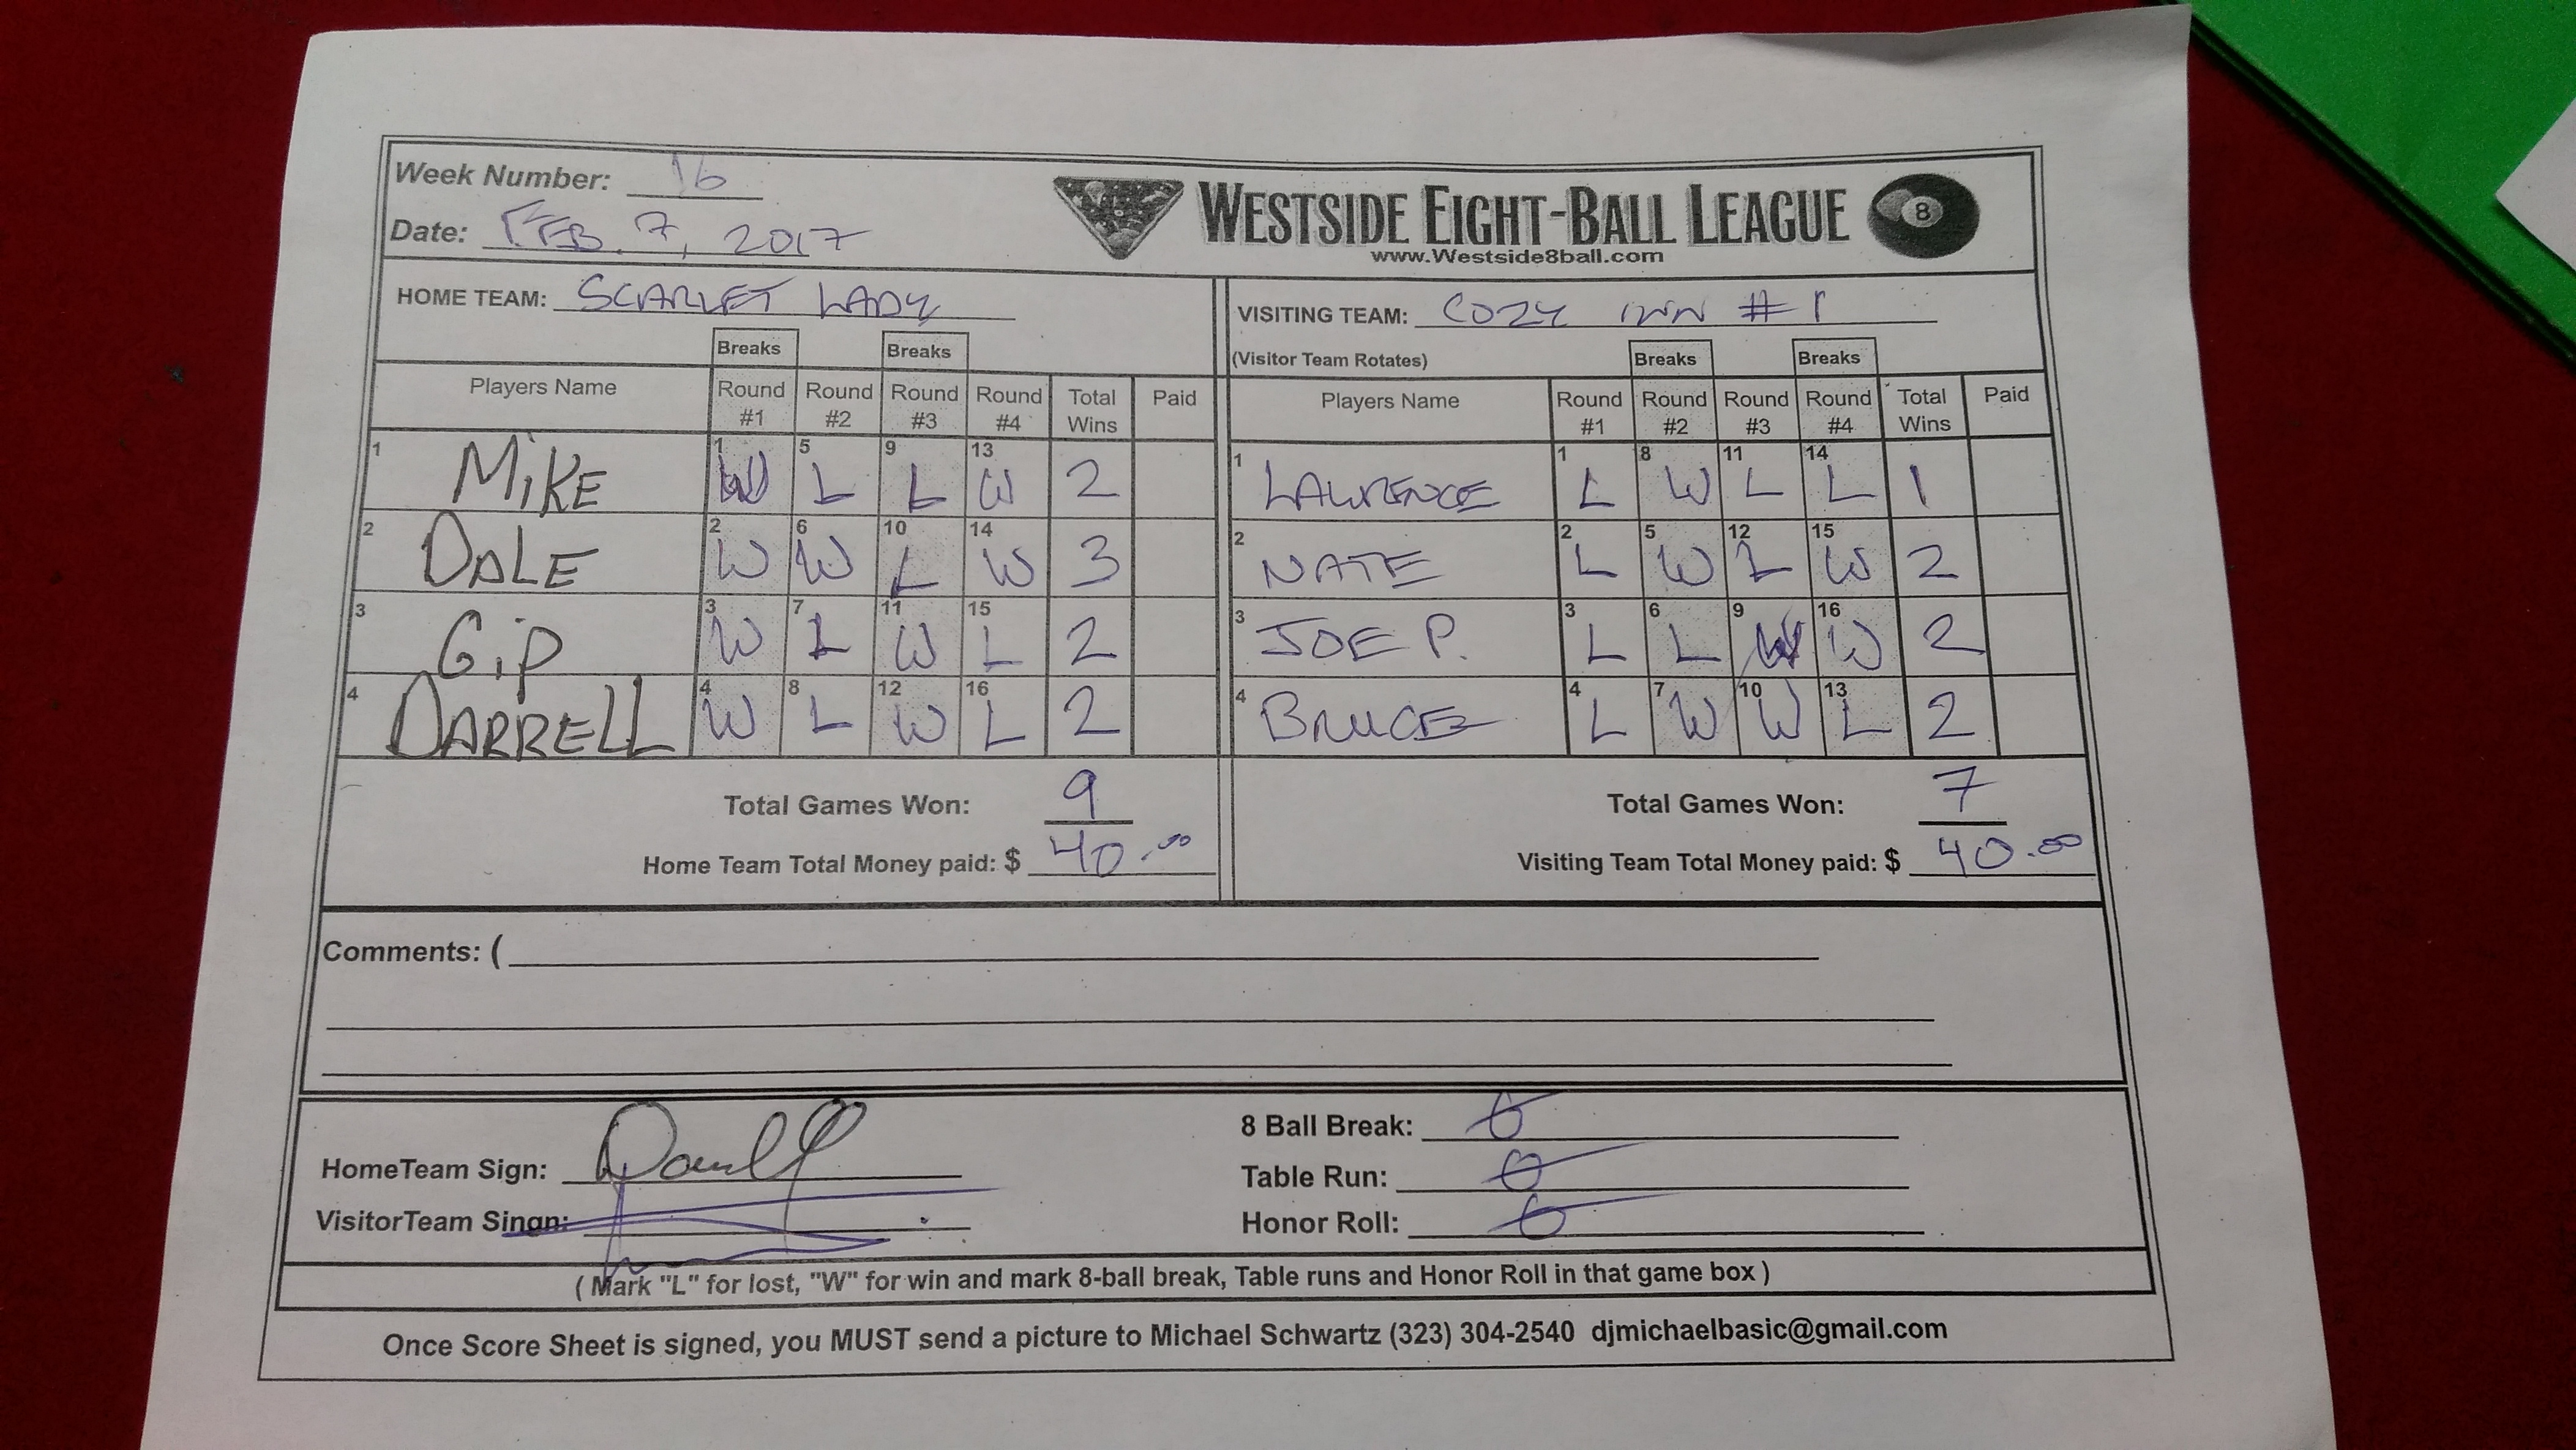 Week Number: 16
Date: FEB. 7, 2017
WESTSIDE EIGHT-BALL LEAGUE 8
www.Westside8ball.com
HOME TEAM: SCARLET LADY
VISITING TEAM: COZY INN #1
(Visitor Team Rotates)
Breaks Breaks Breaks Breaks
Players Name Round #1 Round #2 Round #3 Round #4 Total Wins Paid Players Name Round #1 Round #2 Round #3 Round #4 Total Wins Paid
1 MIKE 1 W 5 L 9 L 13 W 2 1 LAWRENCE 1 L 8 W 11 L 14 L 1
2 DALE 2 W 6 W 10 L 14 W 3 2 NATE 2 L 5 W 12 L 15 W 2
3 GiP 3 W 7 L 11 W 15 L 2 3 JOE P. 3 L 6 L 9 W 16 W 2
4 DARRELL 4 W 8 L 12 W 16 L 2 4 BRUCE 4 L 7 W 10 W 13 L 2
Total Games Won: 9 Total Games Won: 7
Home Team Total Money paid: $ 40.00 Visiting Team Total Money paid: $ 40.00
Comments: (
HomeTeam Sign: Darrell
VisitorTeam Singn:
8 Ball Break: 0
Table Run: 0
Honor Roll: 0
( Mark "L" for lost, "W" for win and mark 8-ball break, Table runs and Honor Roll in that game box )
Once Score Sheet is signed, you MUST send a picture to Michael Schwartz (323) 304-2540 djmichaelbasic@gmail.com